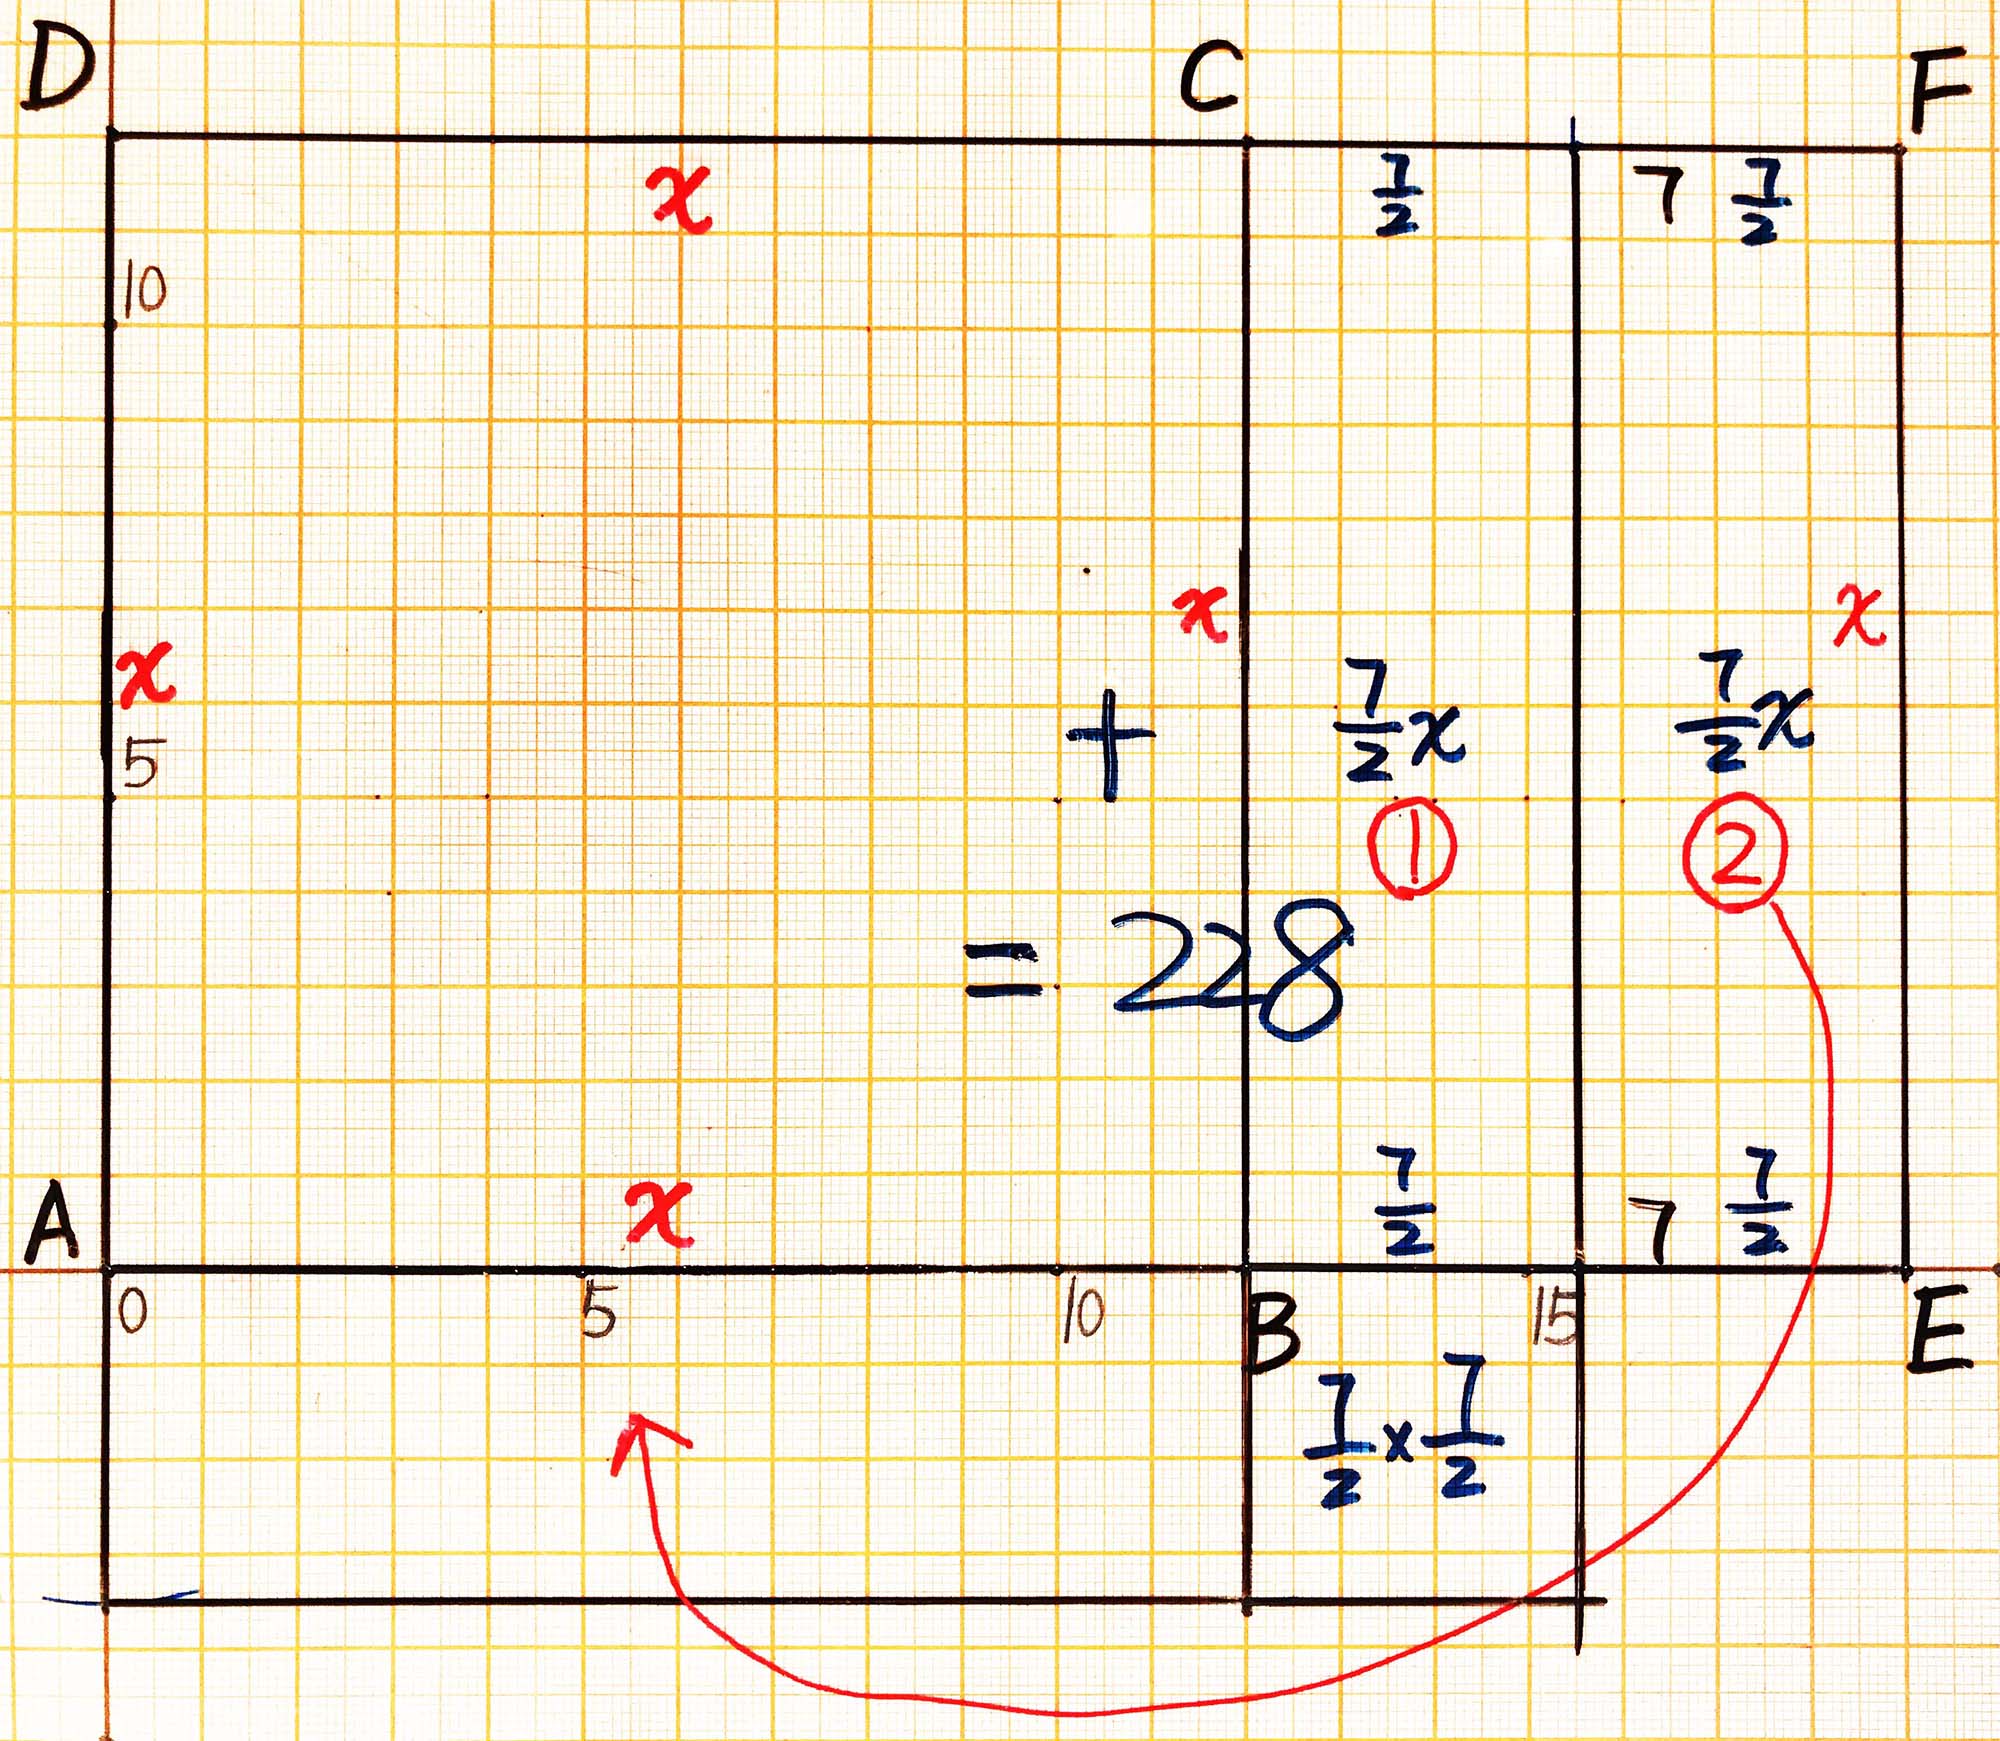 D C F
x 7/2 7 7/2
10
x x
x
+ 7/2 x 7/2 x
5
① ②
= 228
7/2 7 7/2
A x
0 5 10 B 15 E
7/2 × 7/2